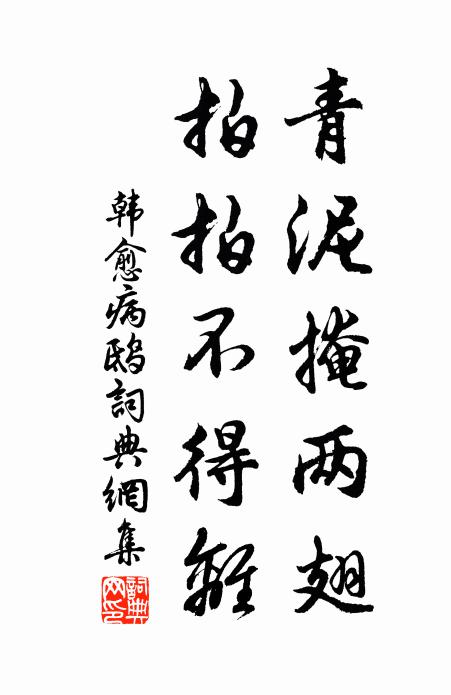 青泥掩两翅
拍拍不得離
韩愈病鴟詞典網集
詞典網印